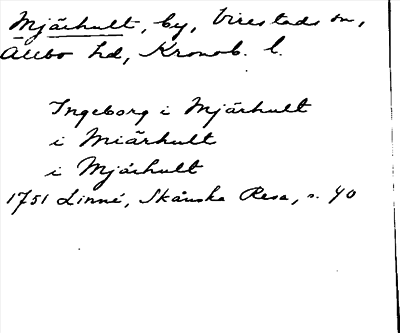 Mjärhult, by, Virestads sn,
Allbo hd, Kronob. l.
Ingeborg i Mjärhult
i Miärhult
i Mjärhult
1751 Linné, Skånska Resa, s. 40